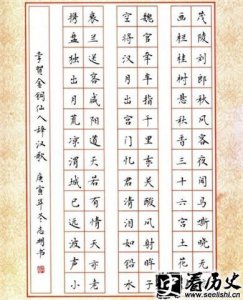 茂陵刘郎秋风客夜闻马嘶晓无
画栏桂树悬秋香三十六宫土花
魏官牵车指千里东关酸风射眸子
空将汉月出宫门忆君清泪如铅水
衰兰送客咸阳道天若有情天亦老
携盘独出月荒凉渭城已远波声小
李贺金铜仙人辞汉歌 庚寅年冬志明书
看历史